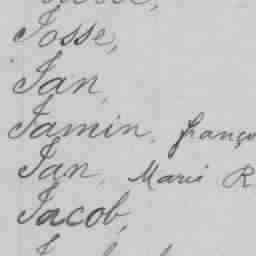 Josse,
Jan,
Jamin, franço
Jan, Marie R
Jacob,